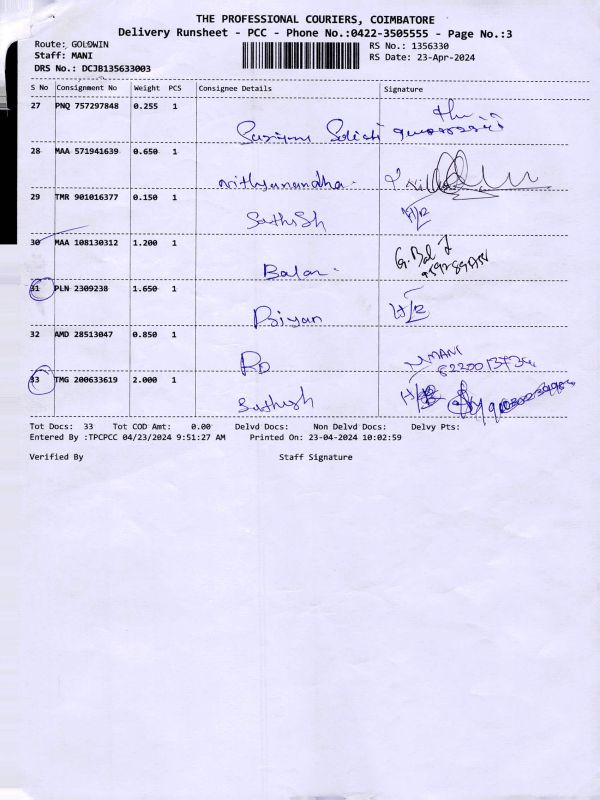 THE PROFESSIONAL COURIERS, COIMBATORE
Delivery Runsheet - PCC - Phone No.:0422-3505555 - Page No.:3
Route: GOLDWIN RS No.: 1356330
Staff: MANI RS Date: 23-Apr-2024
DRS No.: DCJB135633003
S No Consignment No Weight PCS Consignee Details Signature
27 PNQ 757297848 0.255 1
28 MAA 571941639 0.650 1 nithyanandha
29 TMR 901016377 0.150 1 Sathish H/R
30 MAA 108130312 1.200 1 Balan G. Bal
31 PLN 2309238 1.650 1 Priyan H/R
32 AMD 28513047 0.850 1 RD MANI
33 TMG 200633619 2.000 1 Sathish H/R
Tot Docs: 33 Tot COD Amt: 0.00 Delvd Docs: Non Delvd Docs: Delvy Pts:
Entered By :TPCPCC 04/23/2024 9:51:27 AM Printed On: 23-04-2024 10:02:59
Verified By Staff Signature